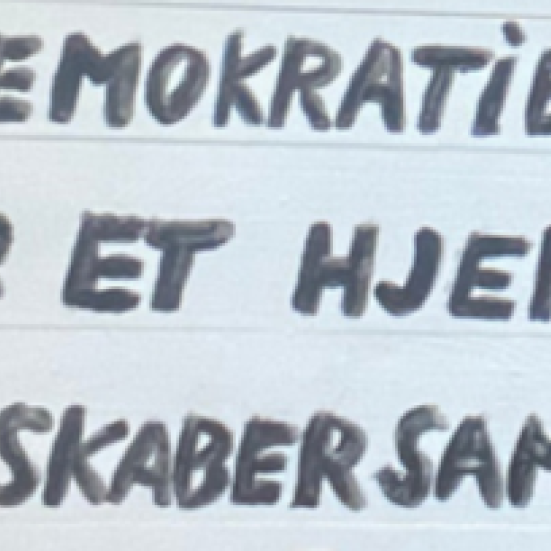 EMOKRATiE
R ET HJEM
SKABER SAM